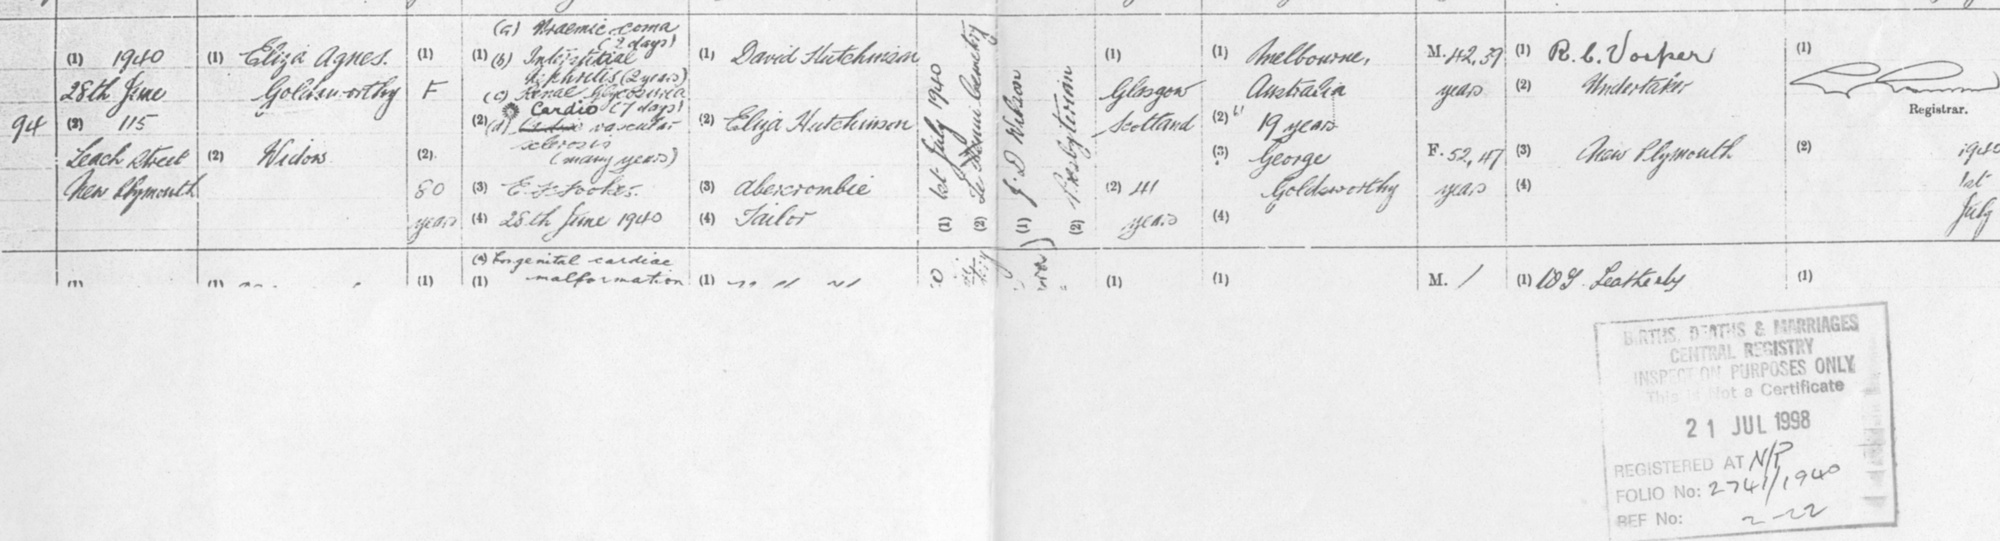 94
(1) 1940
28th June
(2) 115
Leach Street
New Plymouth
(1) Eliza Agnes.
Goldsworthy
(2) Widow
(1)
F
(2)
80
years
(a) Uraemic coma
(2 days)
(1) (b) Interstitial
Nephritis (2 years)
(c) Renal Glycosuria
(7 days)
Cardio
(2) (d) vascular
sclerosis
(many years)
(3)
(4) 28th June 1940
(1) David Hutchinson
(2) Eliza Hutchinson
(3) Abercrombie
(4) Tailor
(1) 1st July 1940
(2) Te Henui Cemetery
(1) J. D. Wilson
(2) Presbyterian
(1)
Glasgow
Scotland
(2) 41
years
(1) Melbourne,
Australia
(2) (1)
19 years
(3) George
Goldsworthy
(4)
M. 42, 39
years
F. 52, 47
years
(1) R. C. Vosper
(2) Undertaker
(3) New Plymouth
(4)
(1)
Registrar.
(2) 1940
1st
July
(1)
(1)
(1)
(a) Congenital cardiac
(1) malformation
(1)
(1)
(1)
M. /
(1) W G Leatherby
(1)
BIRTHS, DEATHS & MARRIAGES
CENTRAL REGISTRY
INSPECTION PURPOSES ONLY
This is Not a Certificate
21 JUL 1998
REGISTERED AT N/P
FOLIO No: 2741/1940
REF No: 2-22